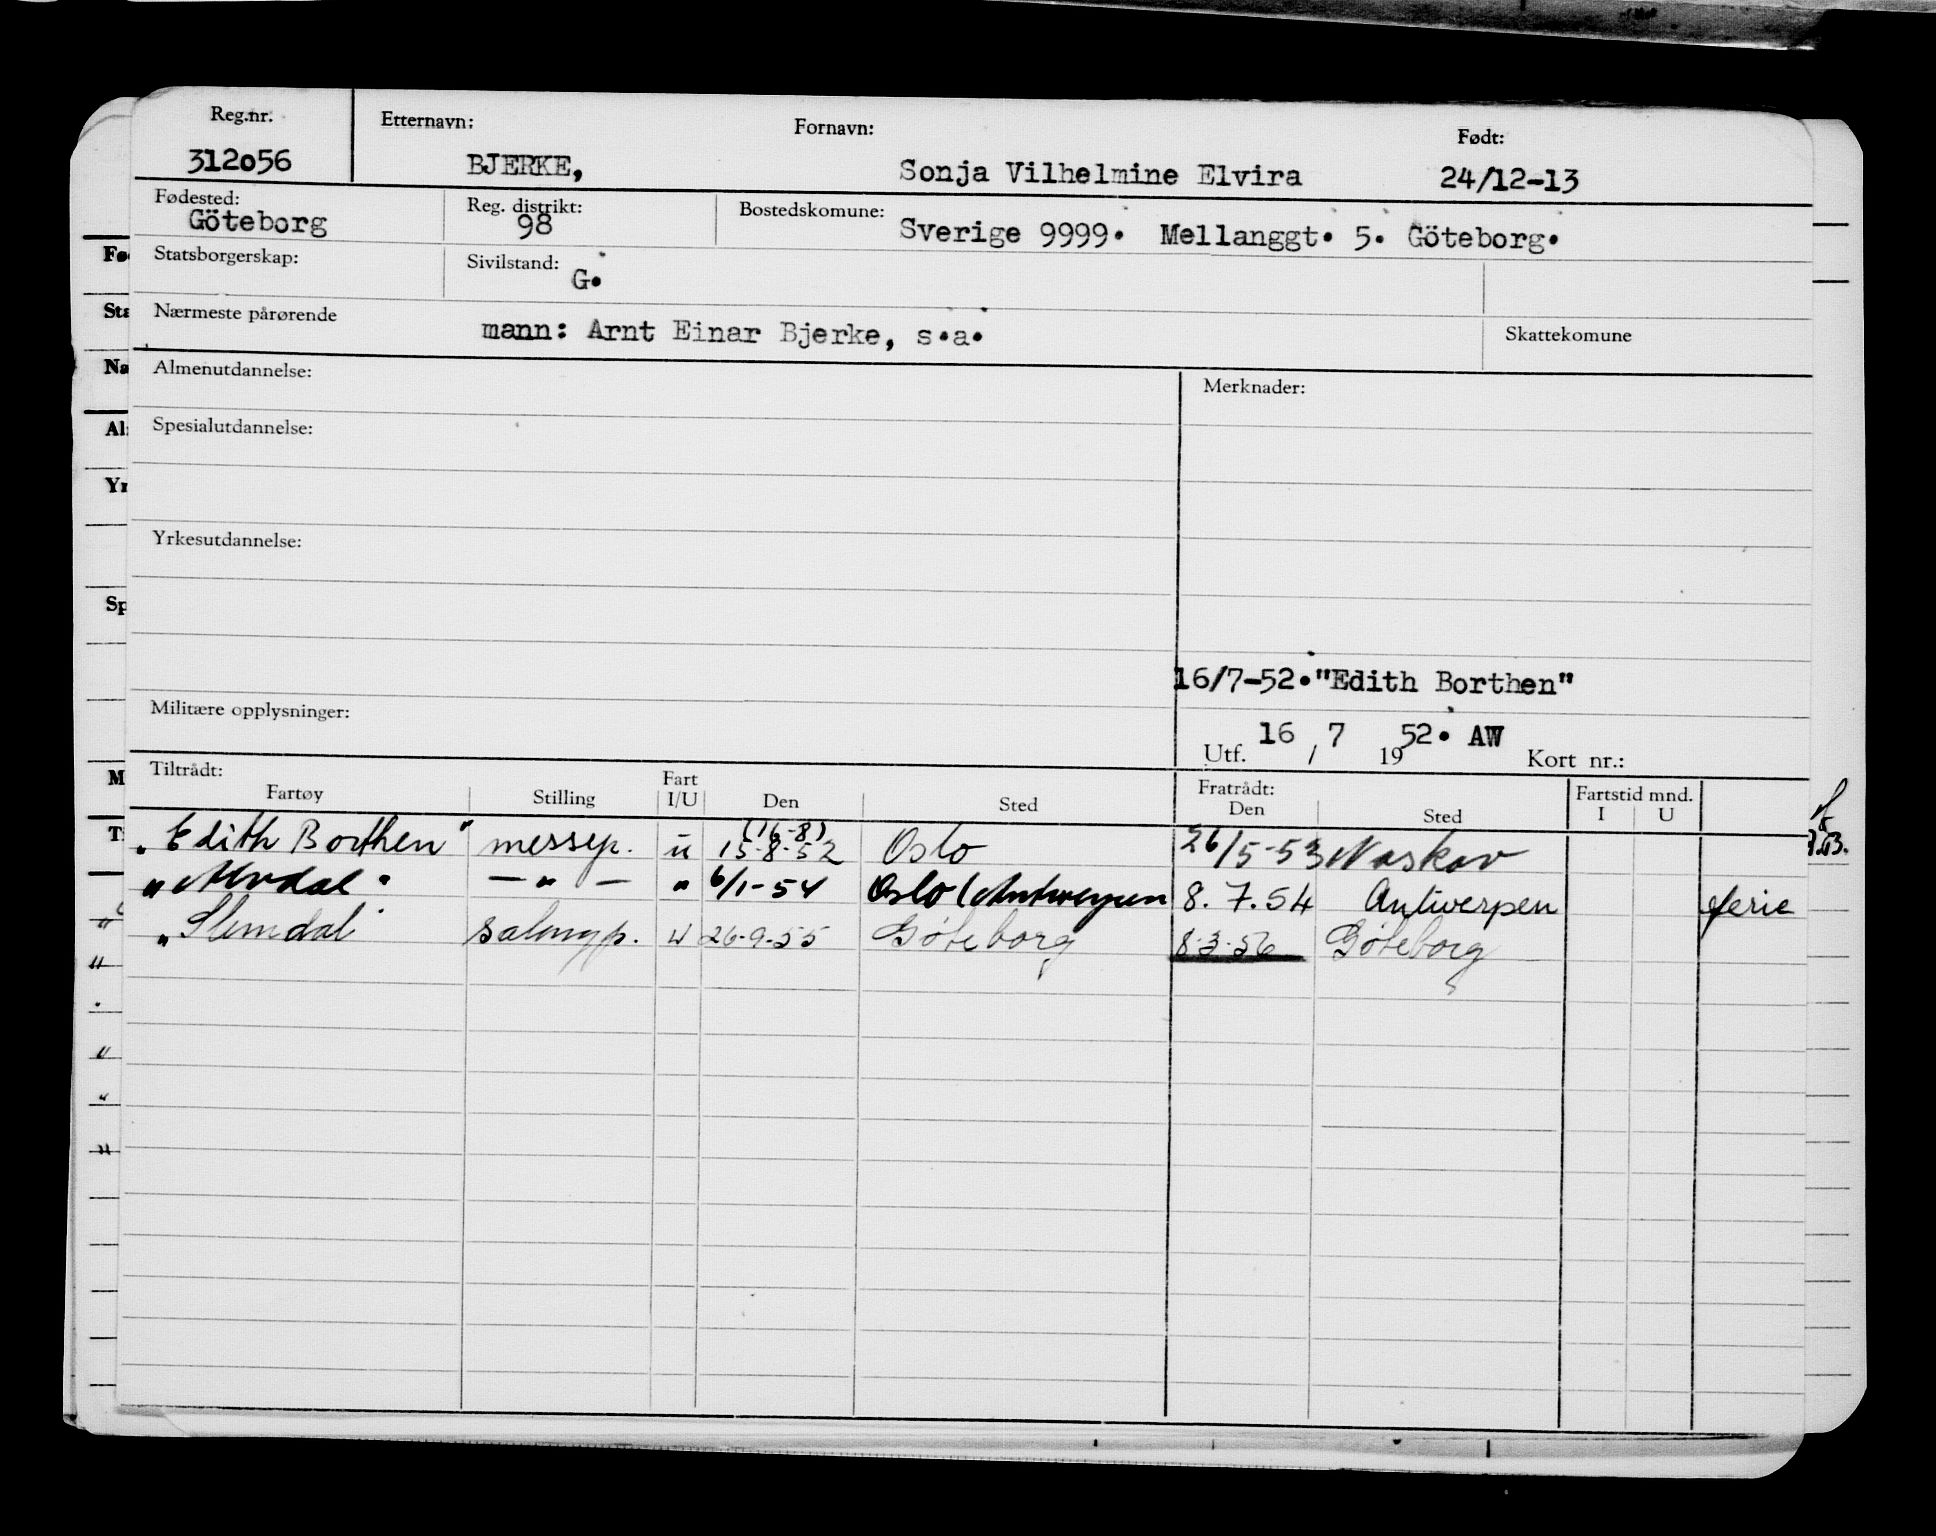 Reg.nr. Etternavn: Fornavn: Født:
312056 BJERKE, Sonja Vilhelmine Elvira 24/12-13
Fødested: Reg. distrikt: Bostedskomune:
Göteborg 98 Sverige 9999. Mellanggt. 5. Göteborg.
Statsborgerskap: Sivilstand: G.
Nærmeste pårørende mann: Arnt Einar Bjerke, s.a. Skattekomune
Almenutdannelse: Merknader:
Spesialutdannelse:
Yrkesutdannelse:
16/7-52."Edith Borthen"
Militære opplysninger:
Utf. 16 / 7 1952. AW Kort nr.:
Tiltrådt: Fart Fratrådt: Fartstid mnd.
Fartøy Stilling I/U Den Sted Den Sted I U
(16-8)
"Edith Borthen" messep. u 15-8-52 Oslo 26/5-53 Naskov
" — " — " 6/1-54 Oslo/Antwerpen 8.7.54 Antwerpen ferie
"Slemdal" salongp. u 26-9-55 Göteborg 8-3-56 Göteborg